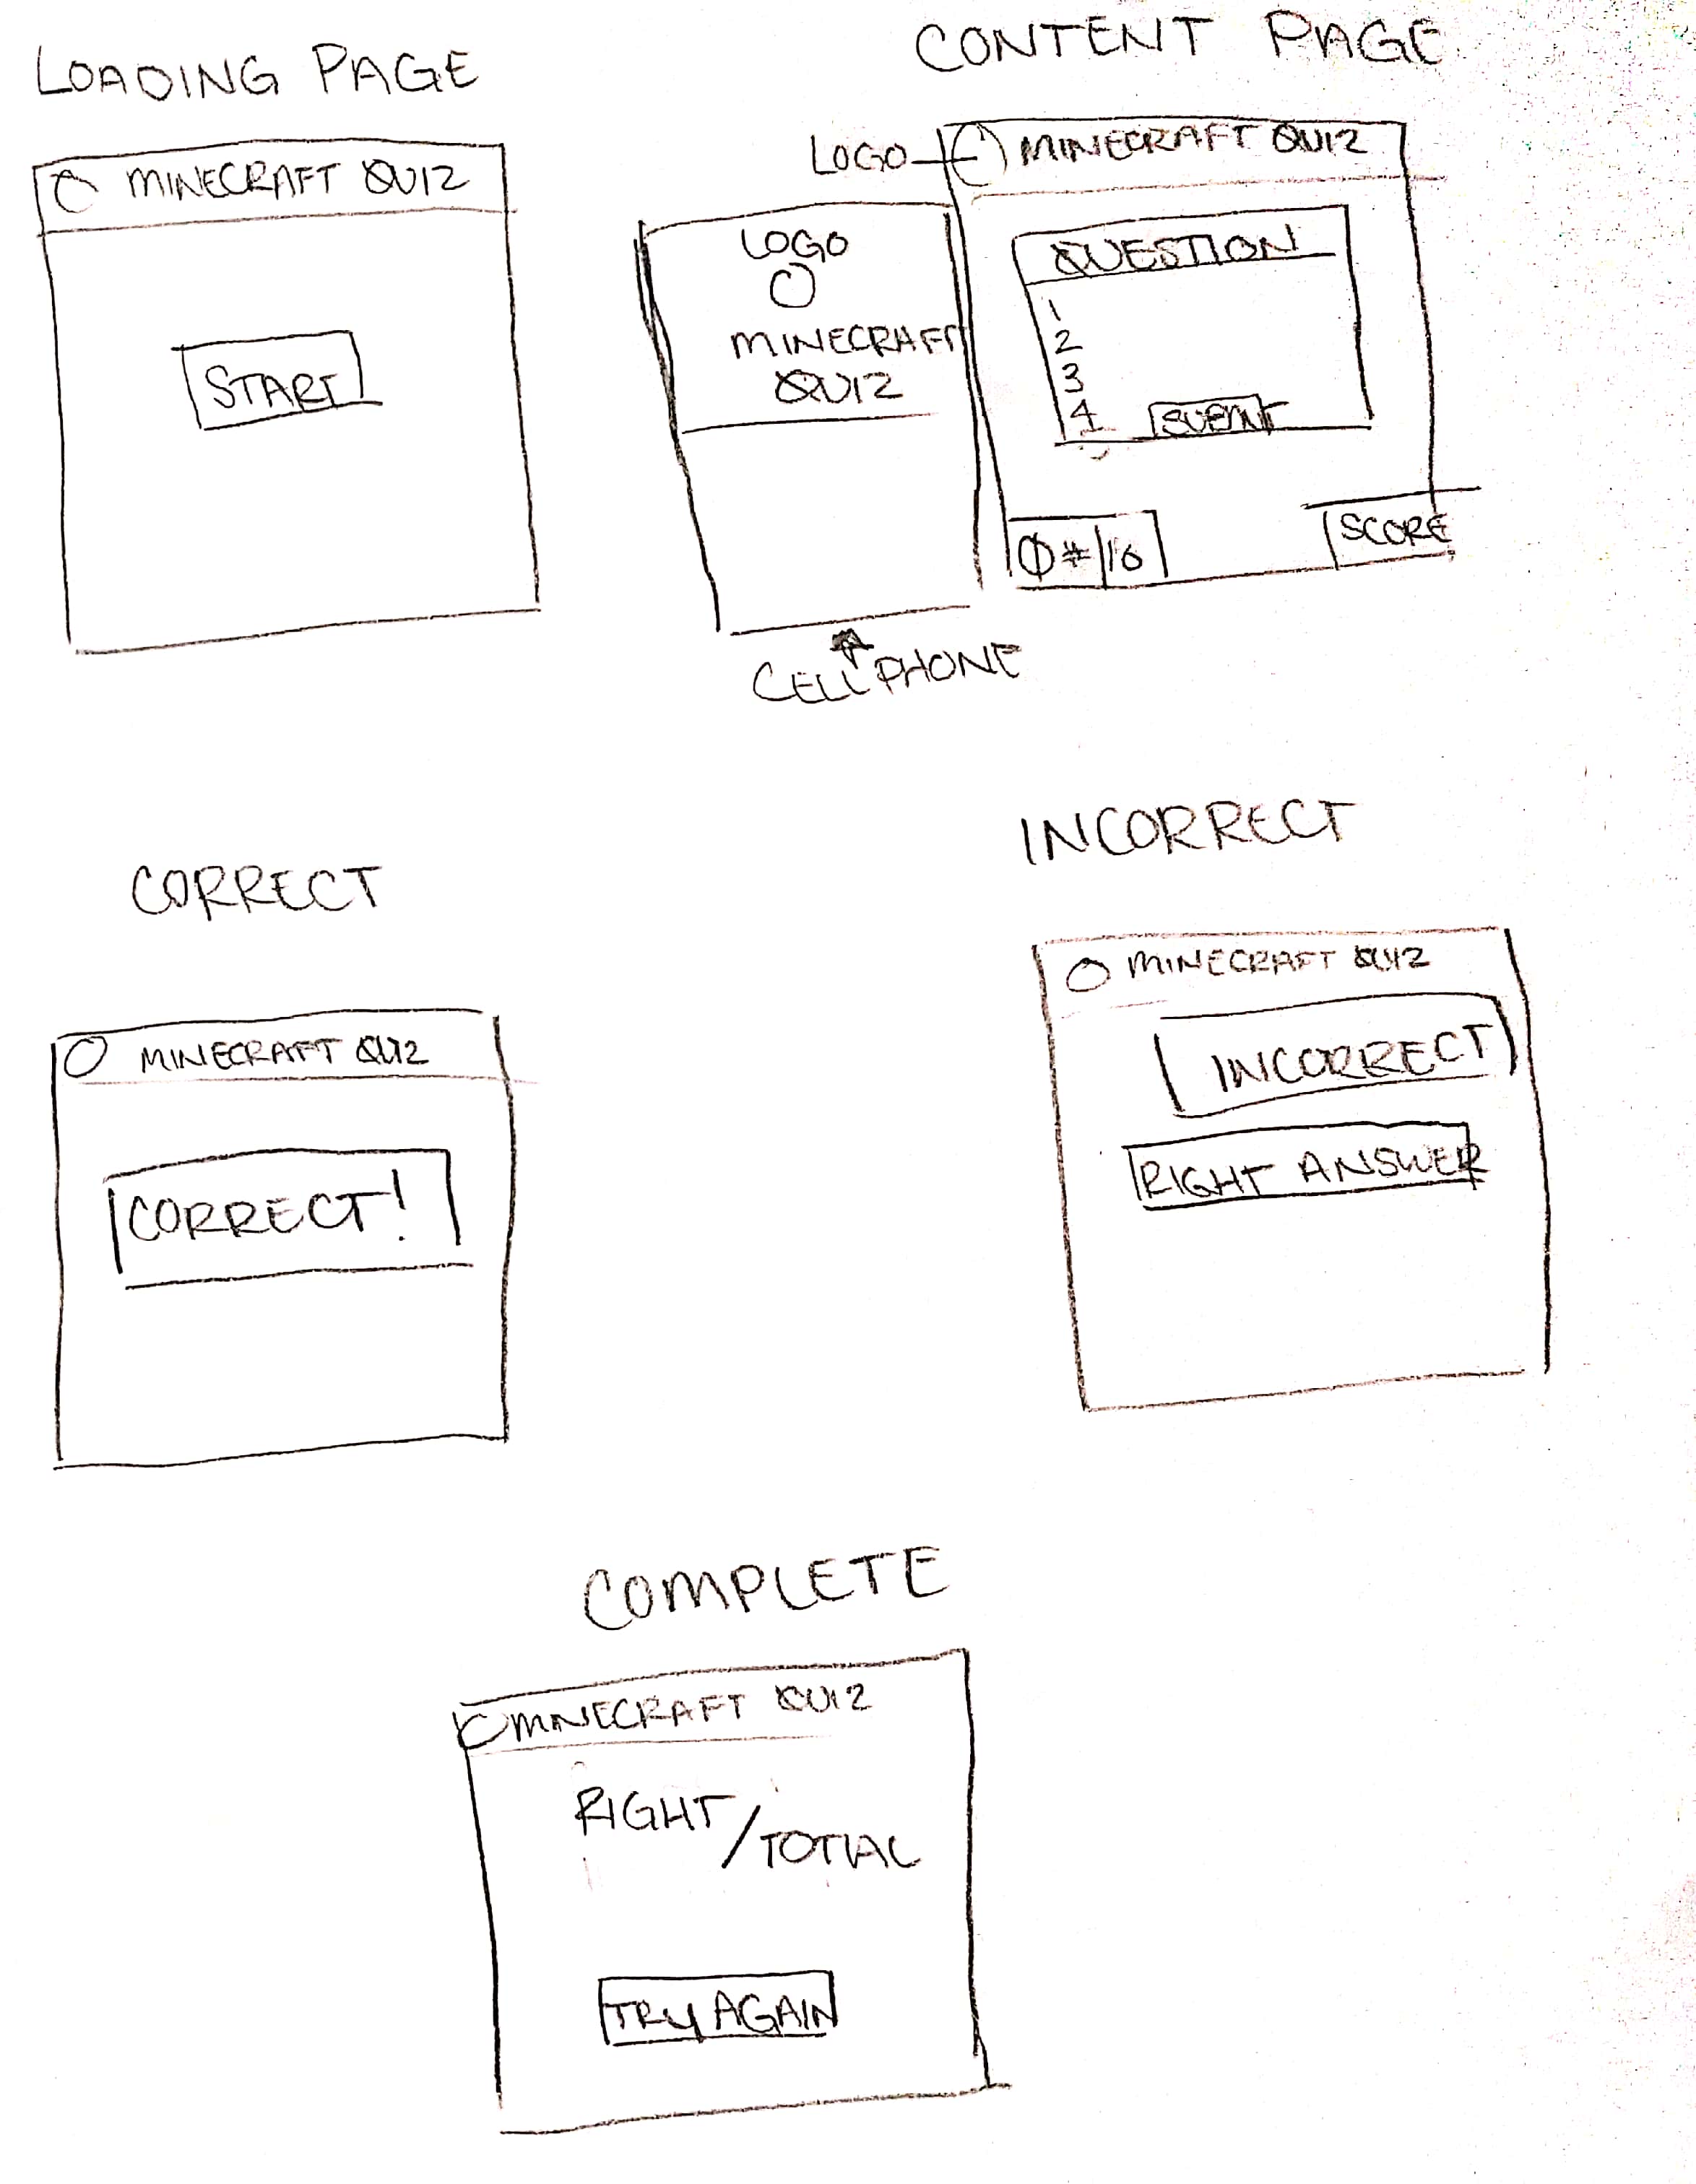 LOADING PAGE
MINECRAFT QUIZ
START
CONTENT PAGE
LOGO
MINECRAFT QUIZ
QUESTION
1
2
3
4
SUBMIT
Q#/10
SCORE
LOGO
MINECRAFT
QUIZ
CELLPHONE
CORRECT
MINECRAFT QUIZ
CORRECT!
INCORRECT
MINECRAFT QUIZ
INCORRECT
RIGHT ANSWER
COMPLETE
MINECRAFT QUIZ
RIGHT/TOTAL
TRY AGAIN